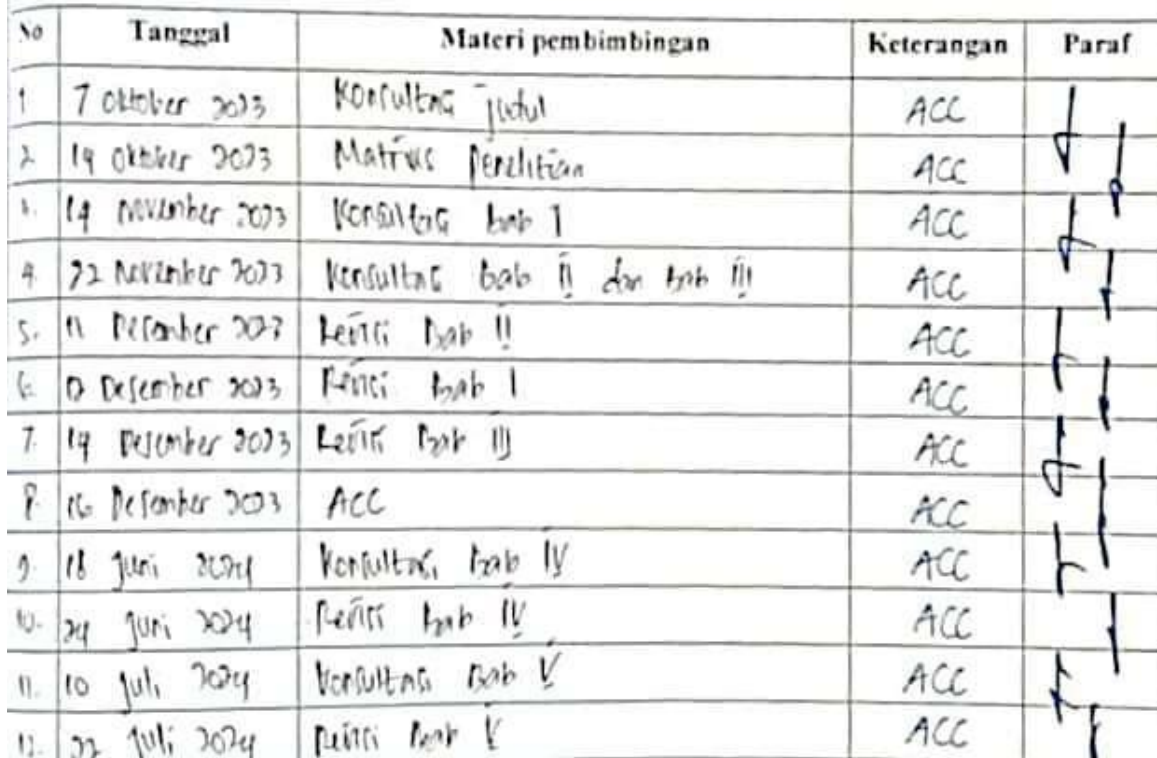 No Tanggal Materi pembimbingan Keterangan Paraf
1 7 Oktober 2023 Konsultasi judul ACC
2. 19 Oktober 2023 Matriks Penelitian ACC
3. 14 November 2023 Konsultasi Bab I ACC
4. 22 November 2023 Konsultasi Bab II dan Bab III ACC
5. 11 Desember 2023 Revisi Bab II ACC
6. Desember 2023 Revisi Bab I ACC
7. 14 Desember 2023 Revisi Bab III ACC
8. 16 Desember 2023 ACC ACC
9. 18 Juni 2024 Konsultasi Bab IV ACC
10. 24 Juni 2024 Revisi Bab IV ACC
11. 10 Juli 2024 Konsultasi Bab V ACC
12. 22 Juli 2024 Revisi Bab V ACC